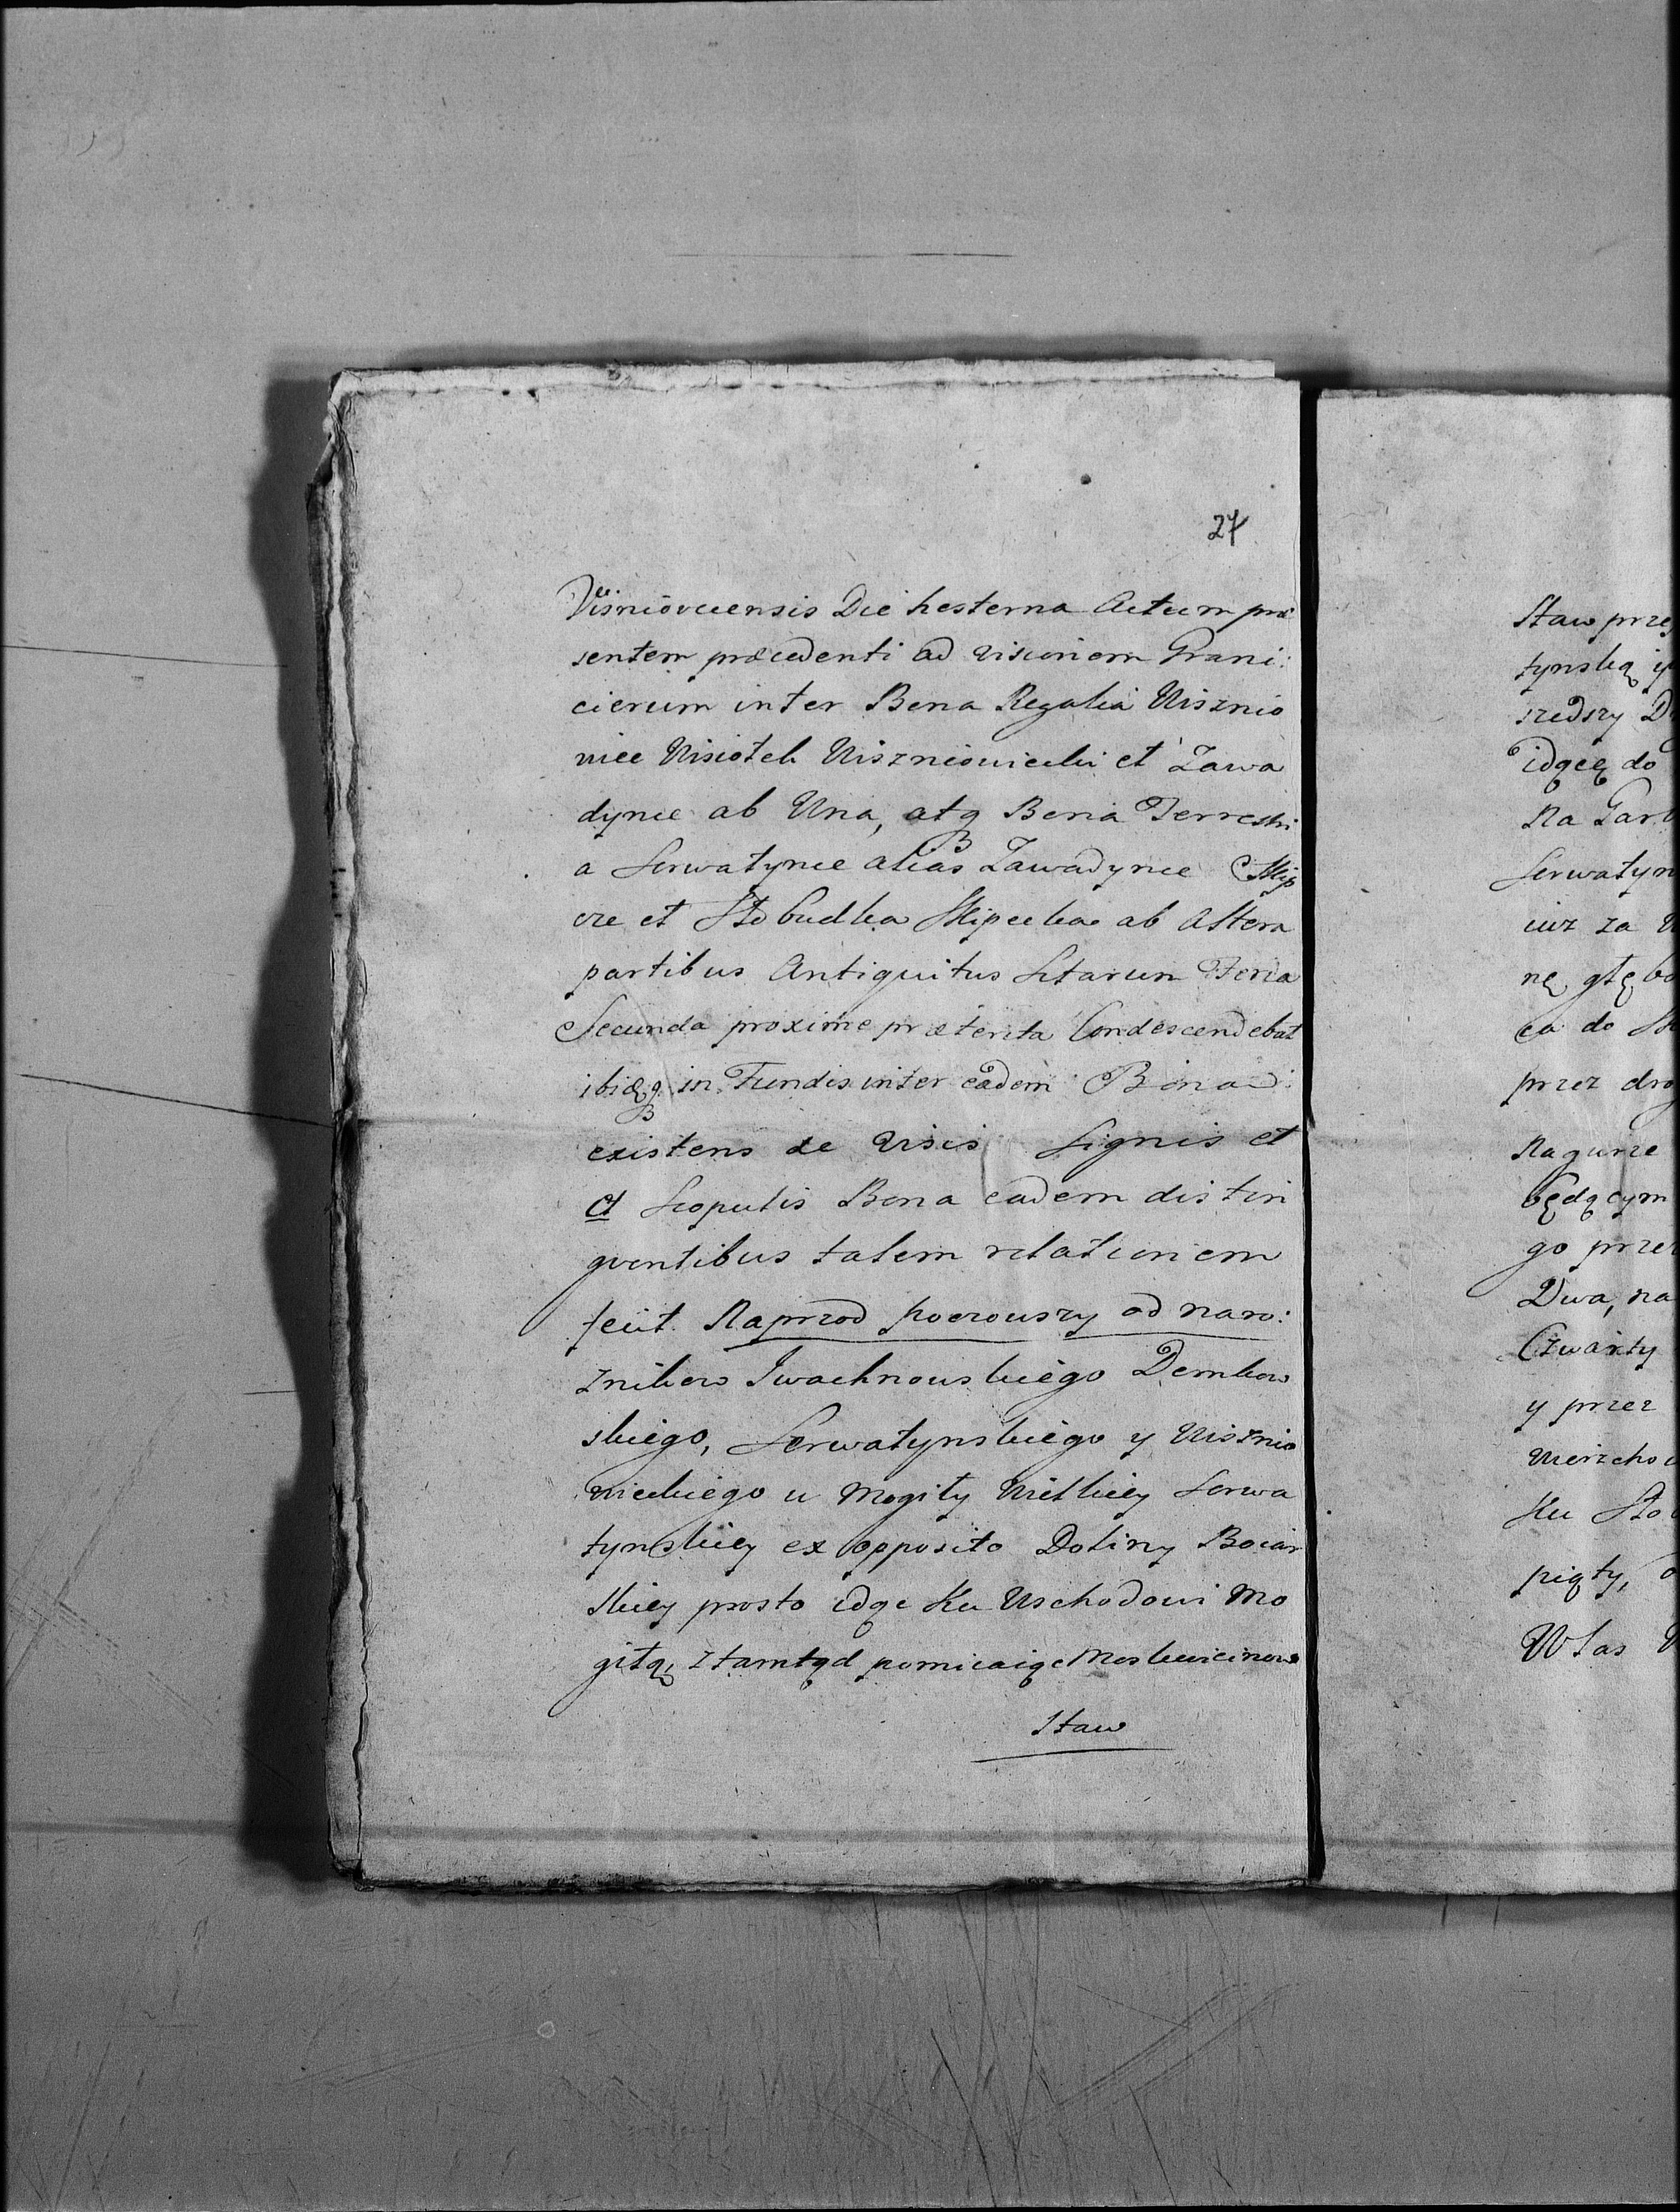 27
Visniovecensis Die hesterna Actum præ
sentem præcedenti ad visionem Grani:
cierum inter Bona Regalia Wisznio
wiec Wisiołek Wiszniowiecki et Zawa
dynce ab Una, atq Bona Terrestri
a Serwatynce alias Zawadynce Skip
cze et Słobudka Skipecka ab Altera
partibus Antiquitus Sitarum Feria
Secunda proxime præterita Condescendebat
ibidēq in Fundis inter eadem Bona
existens de Visis Signis et
et Scopulis Bona eadem distin
gventibus talem relationem
fecit. Naprzod poczowszy od naro:
znikow Iwachnowskiego Dembow
skiego, Serwatynskiego y Wisznio
wieckiego u Mogiły Wielkiey Serwa
tynskiey ex opposito Doliny Boiar
skiey prosto idąc Ku Wschodowi Mo
giłą, ztamtąd pomicaiąc Moskwicinow
Staw
Staw prze
tynską y
szedszy D
idącą do
Na Gar
Serwatyn
iuz za W
nę głębo
ca do Sk
przez dro
Na gurze
będącym
go przez
Dwa, na
Czwarty
y przez
Wierzcho
Ku Sło
piąty,
Wlas